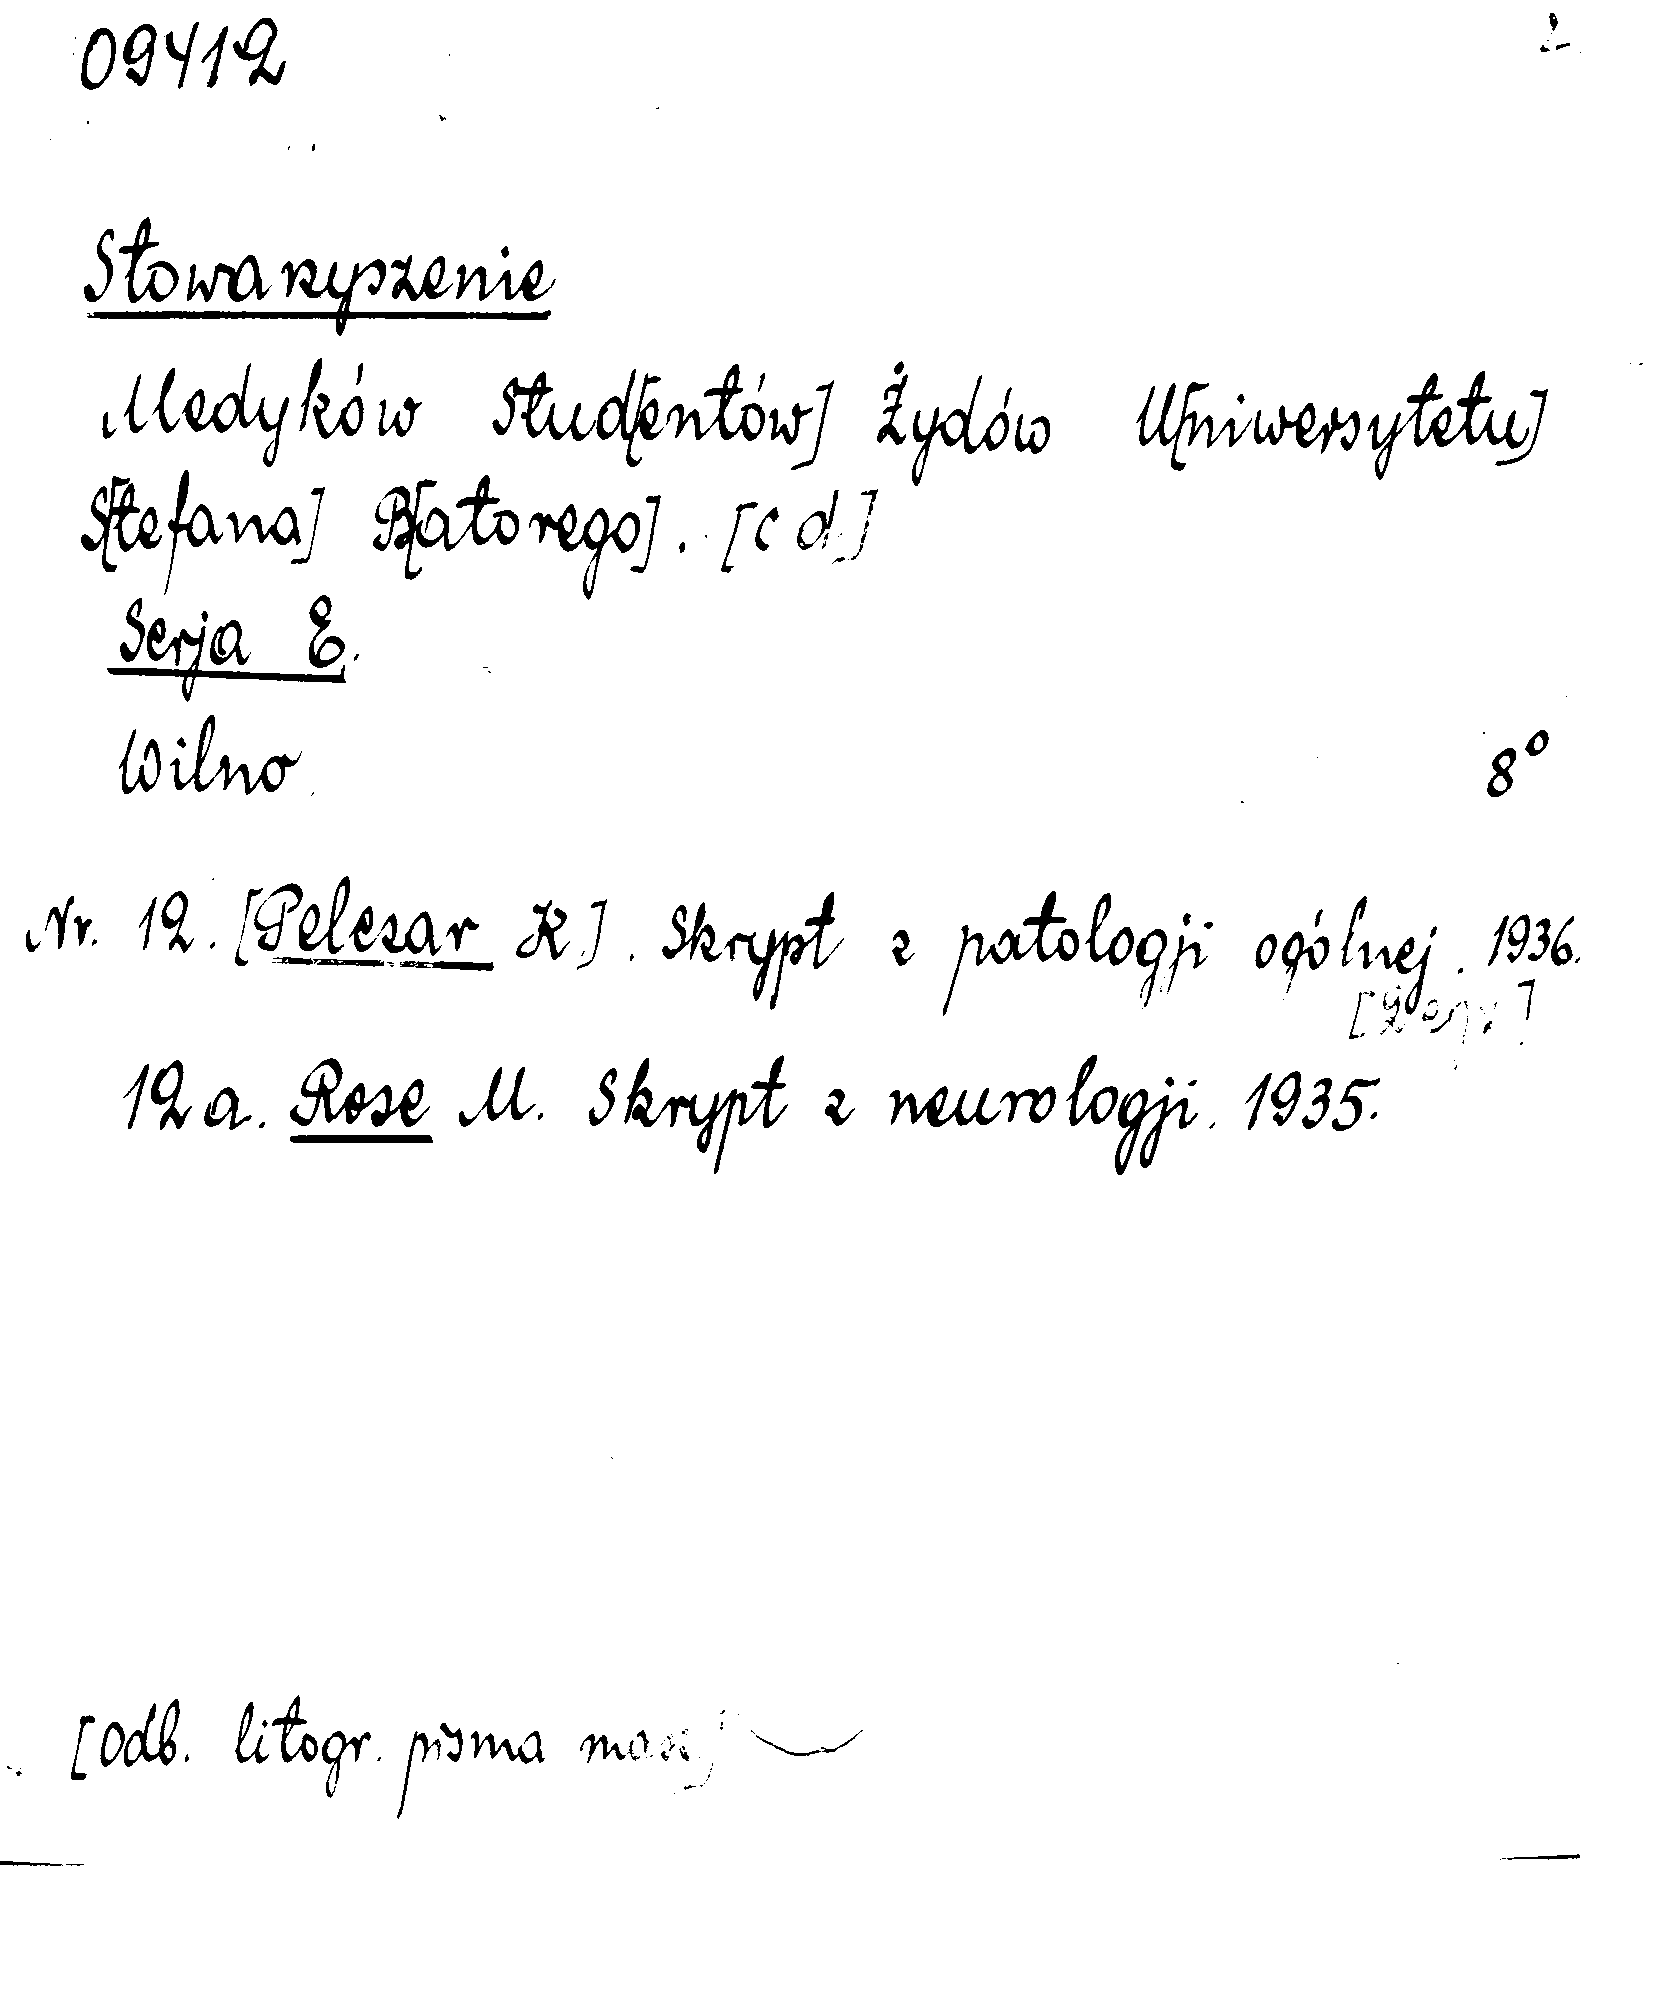 09412
2
Stowarzyszenie
Medyków Stud[entów] Żydów U[niwersytetu]
S[tefana] B[atorego]. [c d.]
Serja E.
Wilno 8°
Nr. 12. [Pelczar K.]. Skrypt z patologji ogólnej. 1936.
12a. Rose M. Skrypt z neurologji. 1935.
[Odb. litogr. pisma masz.]